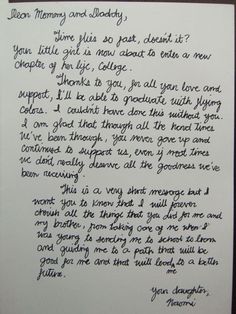 Dear Mommy and Daddy,
"Time flies so fast, doesn't it?
Your little girl is now about to enter a new
chapter of her life, College.
Thanks to you, for all your love and
support, I'll be able to graduate with flying
colors. I couldn't have done this without you.
I am glad that through all the hard times
we've been through, you never gave up and
continued to support us, even if most times
we don't really deserve all the goodness we've
been receiving.
This is a very short message but I
want you to know that I will forever
cherish all the things that you did for me and
my brother, from taking care of me when I
was young to sending me to school to learn
and guiding me to a path that will be
good for me and that will lead me to a better
future.
Your daughter,
Naomi